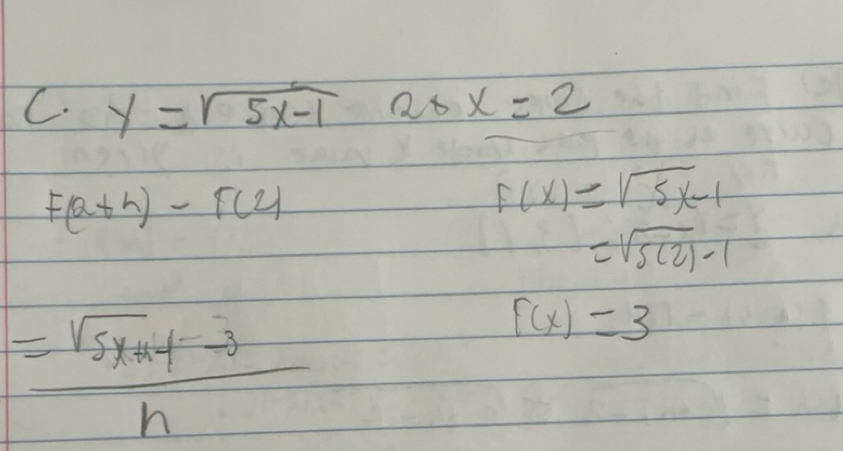 C. y = √5x-1 at x = 2
F(a+h) - F(2)
F(x) = √5x-1
= √5(2)-1
F(x) = 3
= √5x+h-1 - 3
h